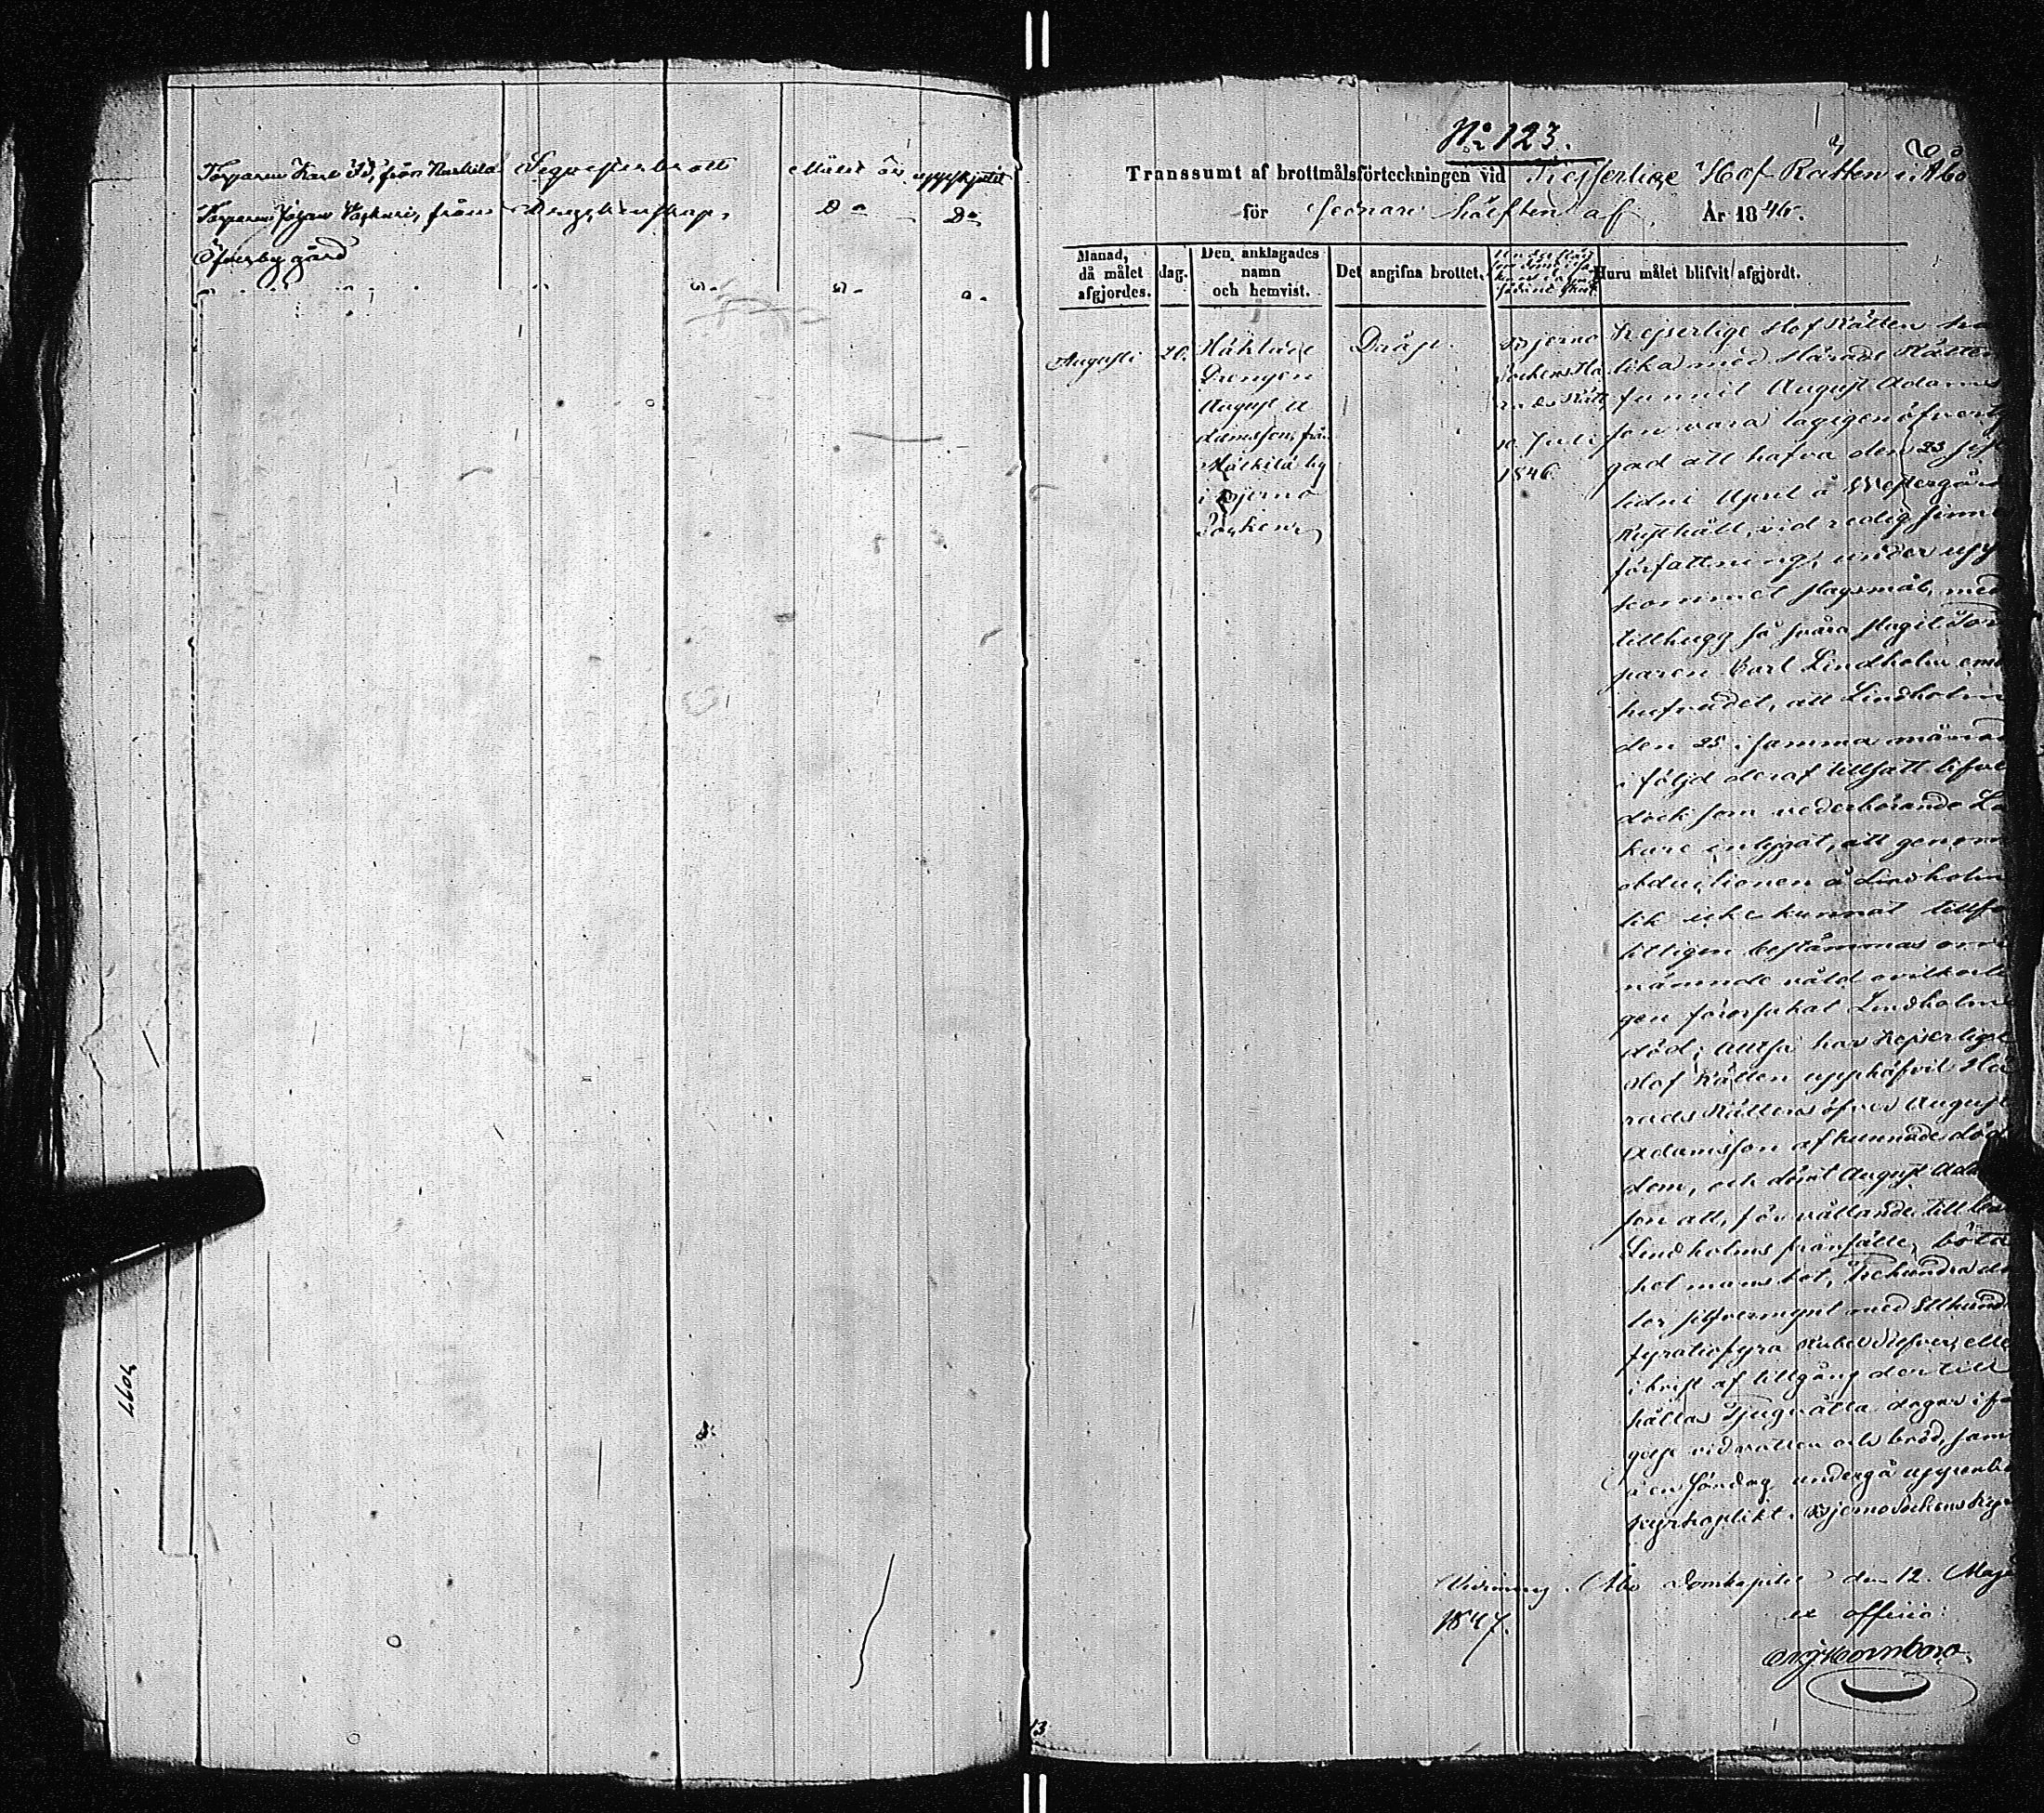 Torparen Karl från Sequesterbrott Målet är uppskjutit
Torparen Johan från Dryckenskap. Do Do
Öfverby gård
No 123.
Transsumt af brottmålsförteckningen vid Kejserlige Hof Rätten i Åbo
för sednare hälften af År 1846.
Månad, då målet afgjordes.
dag.
Den anklagades namn och hemvist.
Det angifna brottet.
Huru målet blifvit afgjordt.
Augusti
20.
Häktade
Drengen
August A
damsson, från
by
i Bjerno
Socken,
Dråp.
Bjerno
Sockens Hä
rads Rätt
10 Juli
1846.
Kejserlige Hof Rätten ha
lika med Härads Rätten
funnit August Adams
son vara lagligen öfverty
gad att hafva den 23 sist
lidne April å Westergård
Rusthåll, vid redig sinne
författning, under upp
kommet slagsmål, med
tillhugg så svåra slagit Tor
paren Karl Lindholm em
hufvudet, att Lindholm
den 25 i samma månad
i följd deraf tillsatt lifvet
dock som vederbörande Lä
kare intygat, att genom
obductionen å Lindholms
lik icke kunnat tillför
litligen bestämmas om
nämnde våld ovilkorli
gen förorsakat Lindholms
död; Alltså har Kejserlige
Hof Rätten upphäfvit Hä
rads Rättens öfver August
Adamsson afkunnade döds
dom, och dömt August Adams
son att, för vållande till
Lindholms frånfälle, böta
hel mans bot, Trehundra da
ler silfvermynt med Etthundra
fyratiofyra Rubel Silfver, elle
i brist af tillgång dertill
hållas Tjuguåtta dagar i fä
gelse vid vatten och bröd, sam
å en Söndag undergå uppenba
kyrkoplikt i Bjerno Sockens Kyr
Åbo Domkapitel den 12. Maji
1847.
ex officio:
13